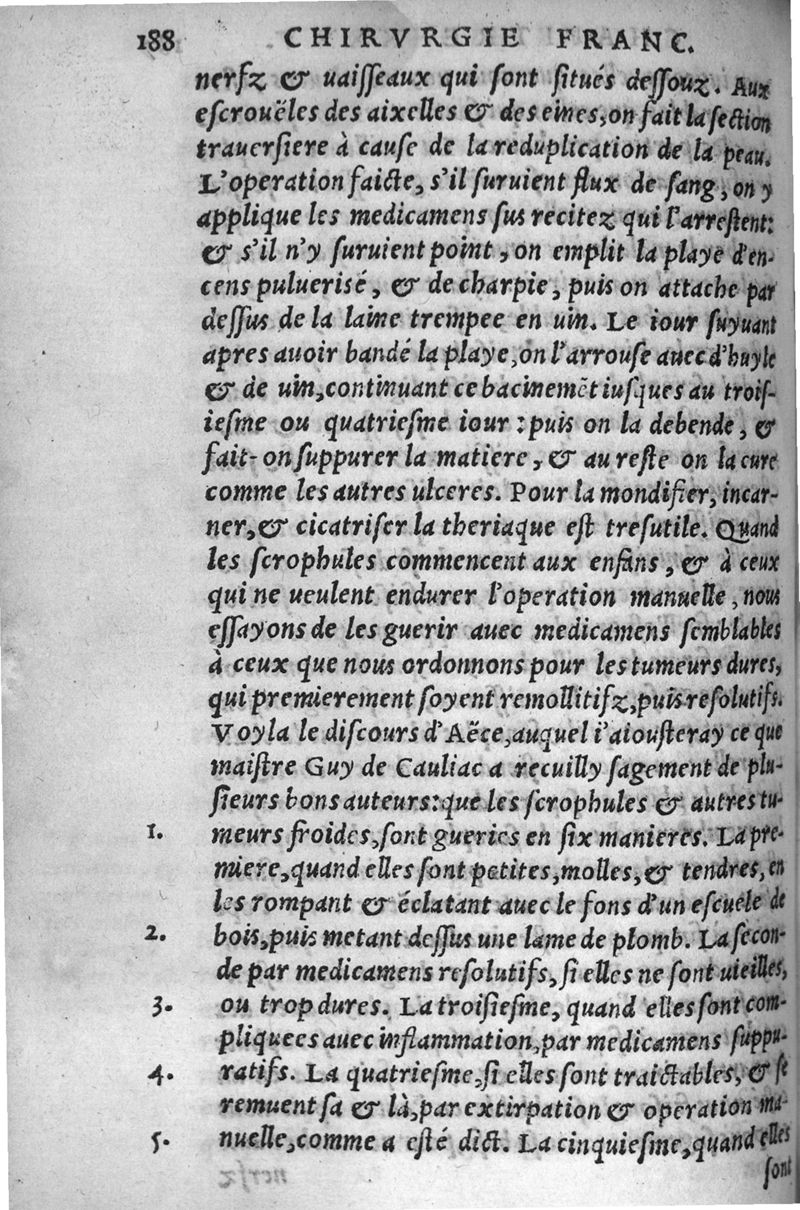 188 CHIRVRGIE FRANC.
nerfz & uaiſſeaux qui ſont ſitués deſſouz. Aux
eſcrouëles des aixelles & des eines, on fait la ſection
trauerſiere à cauſe de la reduplication de la peau.
L'operation faicte, s'il ſuruient flux de ſang, on y
applique les medicamens ſus recitez qui l'arreſtent:
& s'il n'y ſuruient point, on emplit la playe d'en-
cens puluerisé, & de charpie, puis on attache par
deſſus de la laine trempee en uin. Le iour ſuyuant
apres auoir bandé la playe, on l'arrouſe auec d'huyle
& de uin, continuant ce bacinemẽt iuſques au troiſ-
ieſme ou quatrieſme iour: puis on la debende, &
fait-on ſuppurer la matiere, & au reſte on la cure
comme les autres ulceres. Pour la mondifier, incar-
ner, & cicatriſer la theriaque eſt treſutile. Quand
les ſcrophules commencent aux enfans, & à ceux
qui ne ueulent endurer l'operation manuelle, nous
eſſayons de les guerir auec medicamens ſemblables
à ceux que nous ordonnons pour les tumeurs dures,
qui premierement ſoyent remollitifz, puis reſolutifs.
Voyla le diſcours d'Aëce, auquel i'aiouſteray ce que
maiſtre Guy de Cauliac a recuilly ſagement de plu-
ſieurs bons auteurs: que les ſcrophules & autres tu-
1. meurs froides, ſont gueries en ſix manieres. La pre-
miere, quand elles ſont petites, molles, & tendres, en
les rompant & éclatant auec le fons d'un eſcuële de
2. bois, puis metant deſſus une lame de plomb. La ſecon-
de par medicamens reſolutifs, ſi elles ne ſont uieilles,
3. ou trop dures. La troiſieſme, quand elles ſont com-
pliquees auec inflammation, par medicamens ſuppu-
4. ratifs. La quatrieſme, ſi elles ſont traictables, & ſe
remuent ſa & là, par extirpation & operation ma-
5. nuelle, comme a eſté dict. La cinquieſme, quand elles
ſont